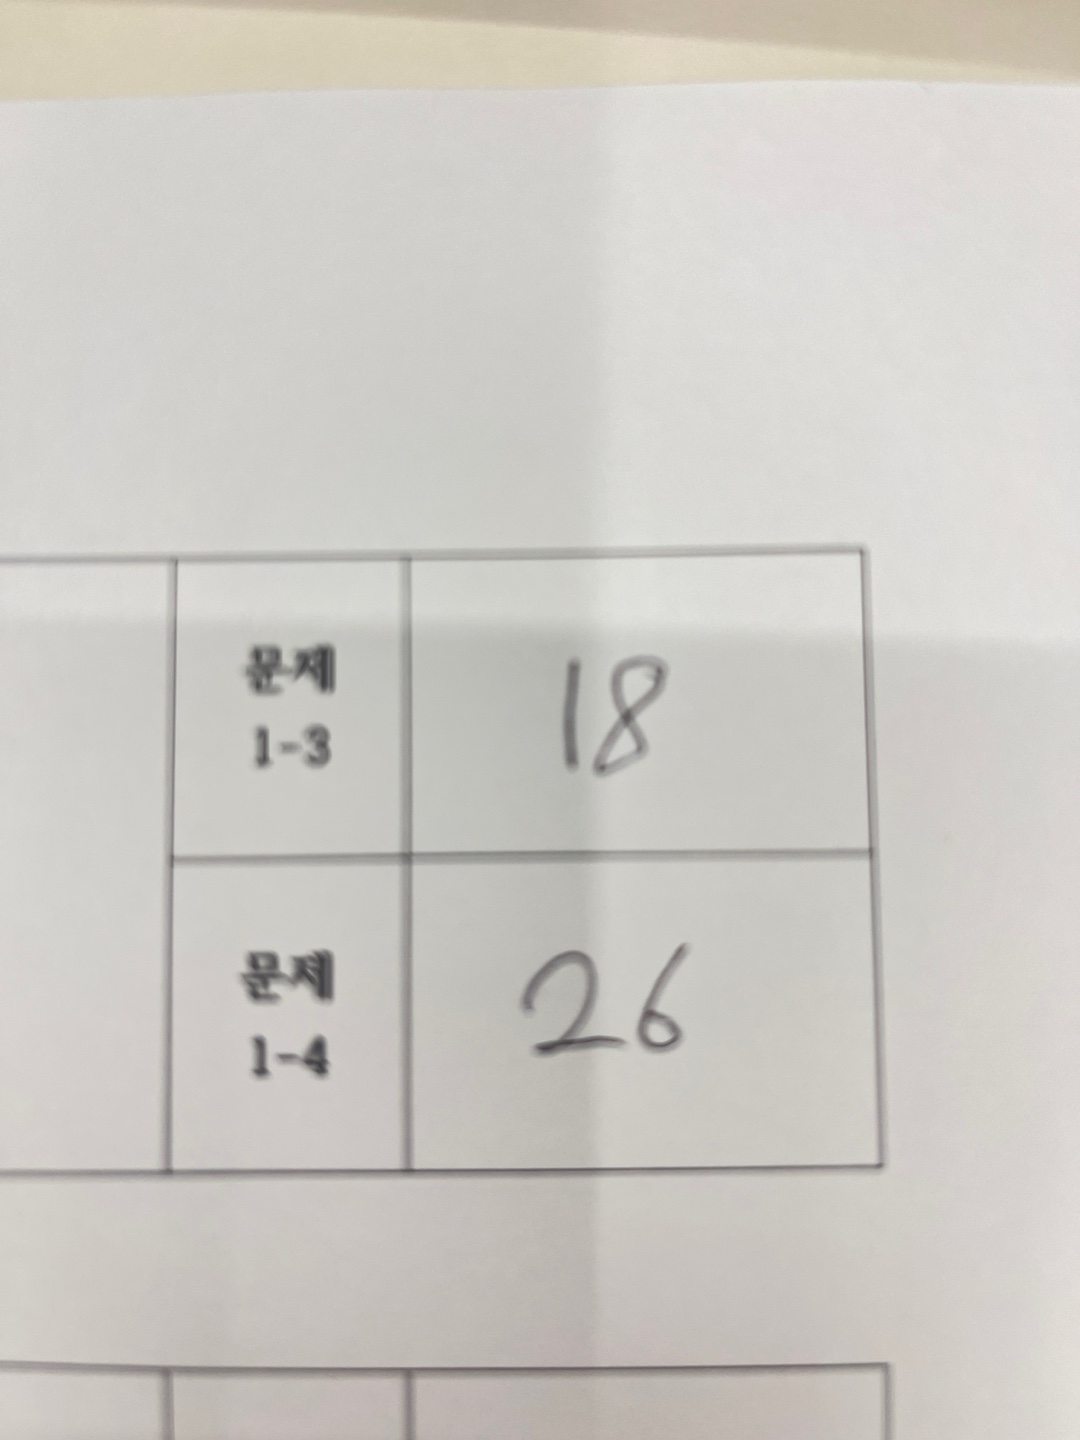 문제
1-3
18
문제
1-4
26